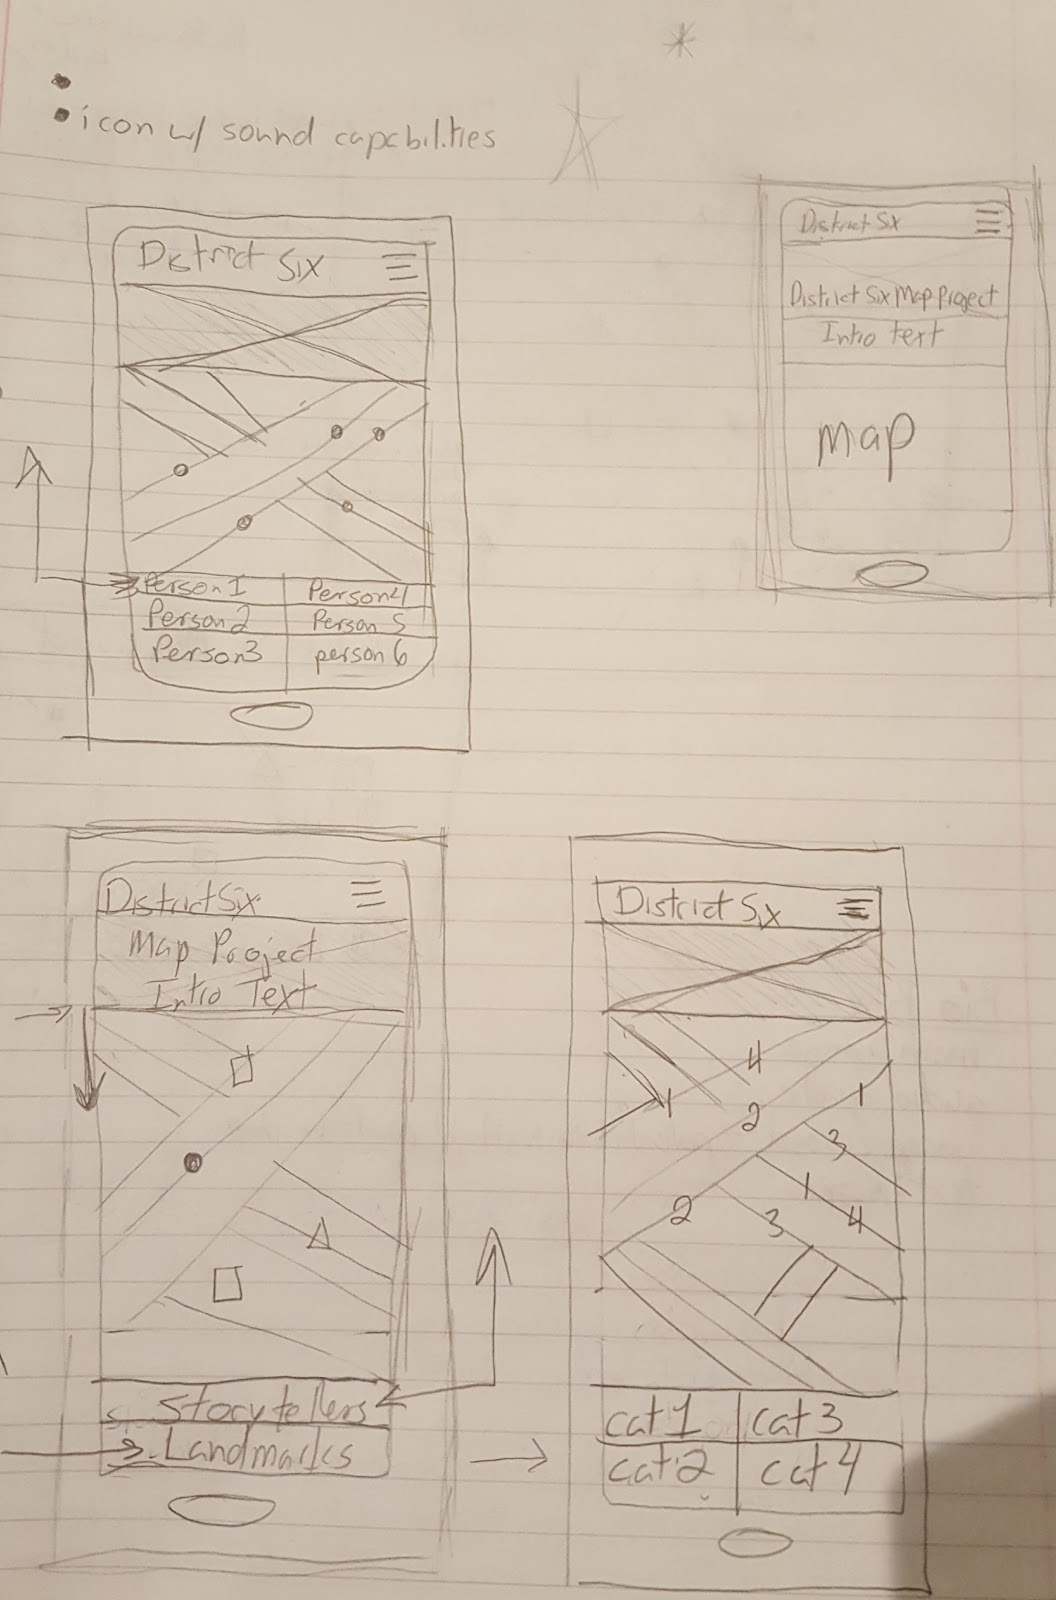 icon w/ sound capcbilities
District Six
Person1 Person4
Person2 Person 5
Person3 person 6
District Six
District Six Map Project
Intro text
map
District Six
Map Project
Intro Text
Storytellers
Landmarks
District Six
4
1 2 1
3
2 3 1 4
cat 1 cat 3
cat 2 cat 4